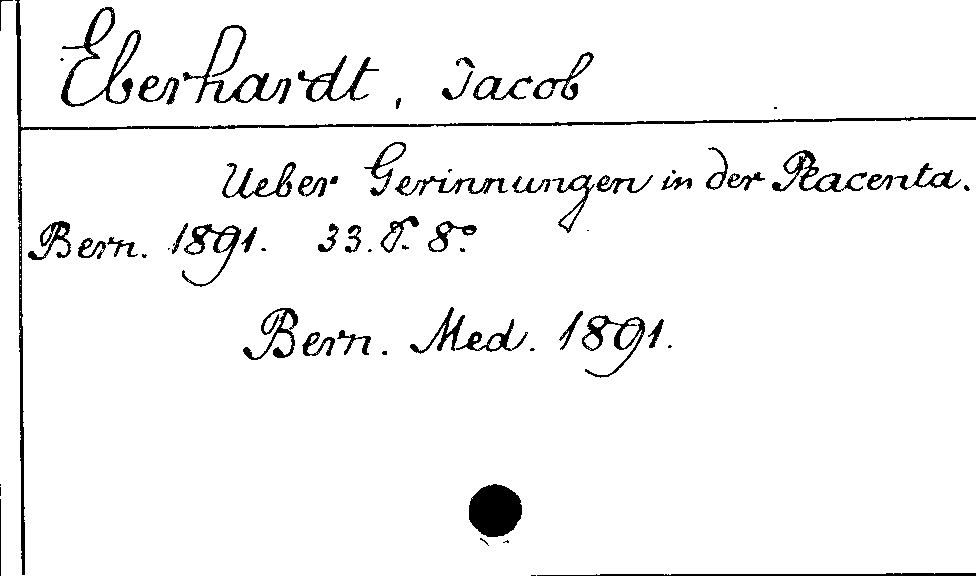 Eberhardt, Jacob
Ueber Gerinnungen in der Placenta.
Bern. 1891. 33. S. 8°
Bern. Med. 1891.